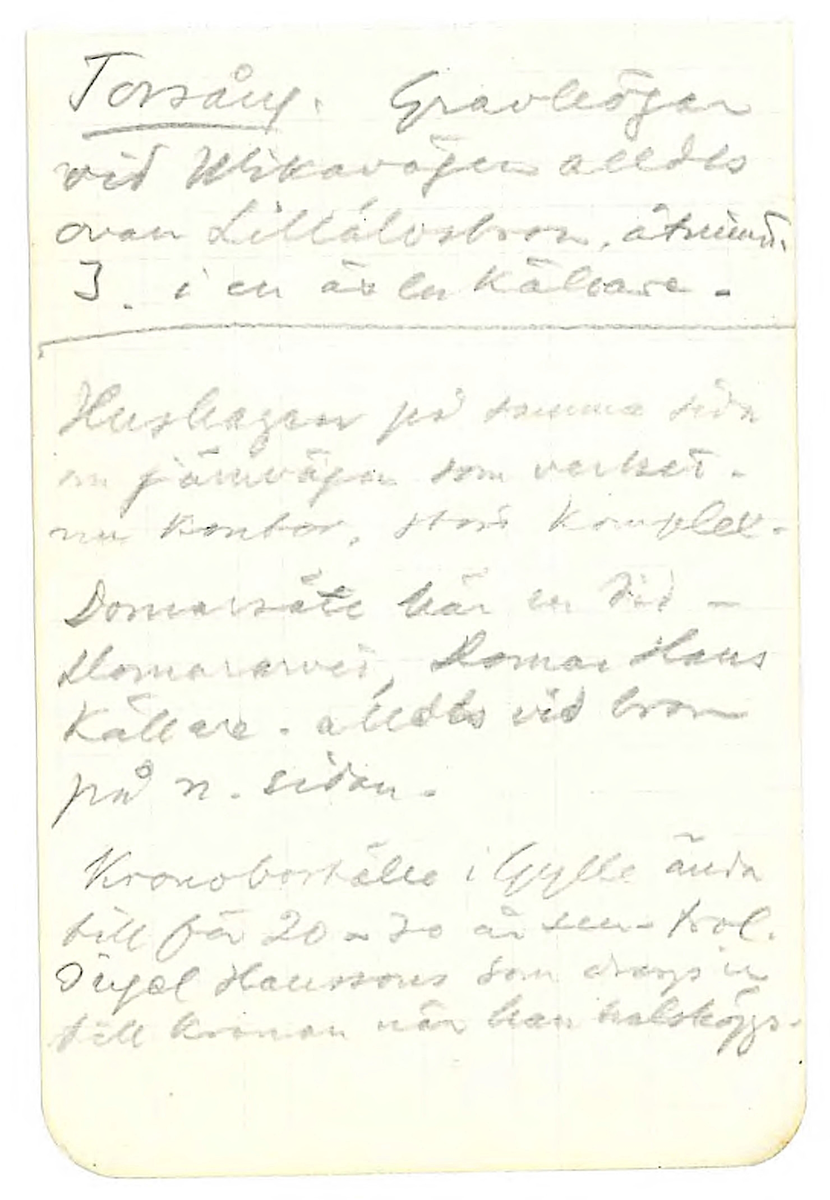 Torsång. Gravhögar
vid Wikavägen alldls
ovan Lillälvsbron, åtminst.
3. i en är en Källare.
Hushagen på samma sida
om järnvägen som verket.
nu kontor, stort komplex.
Domarsäte här en tid –
Domararvet, Domar Hans
Källare. alldls vid bron
på n. sidan.
Kronoboställe i Gylle ända
till för 20 a 30 år sen – trol.
Ingel Hanssons som drogs in
till kronan när han halshöggs.